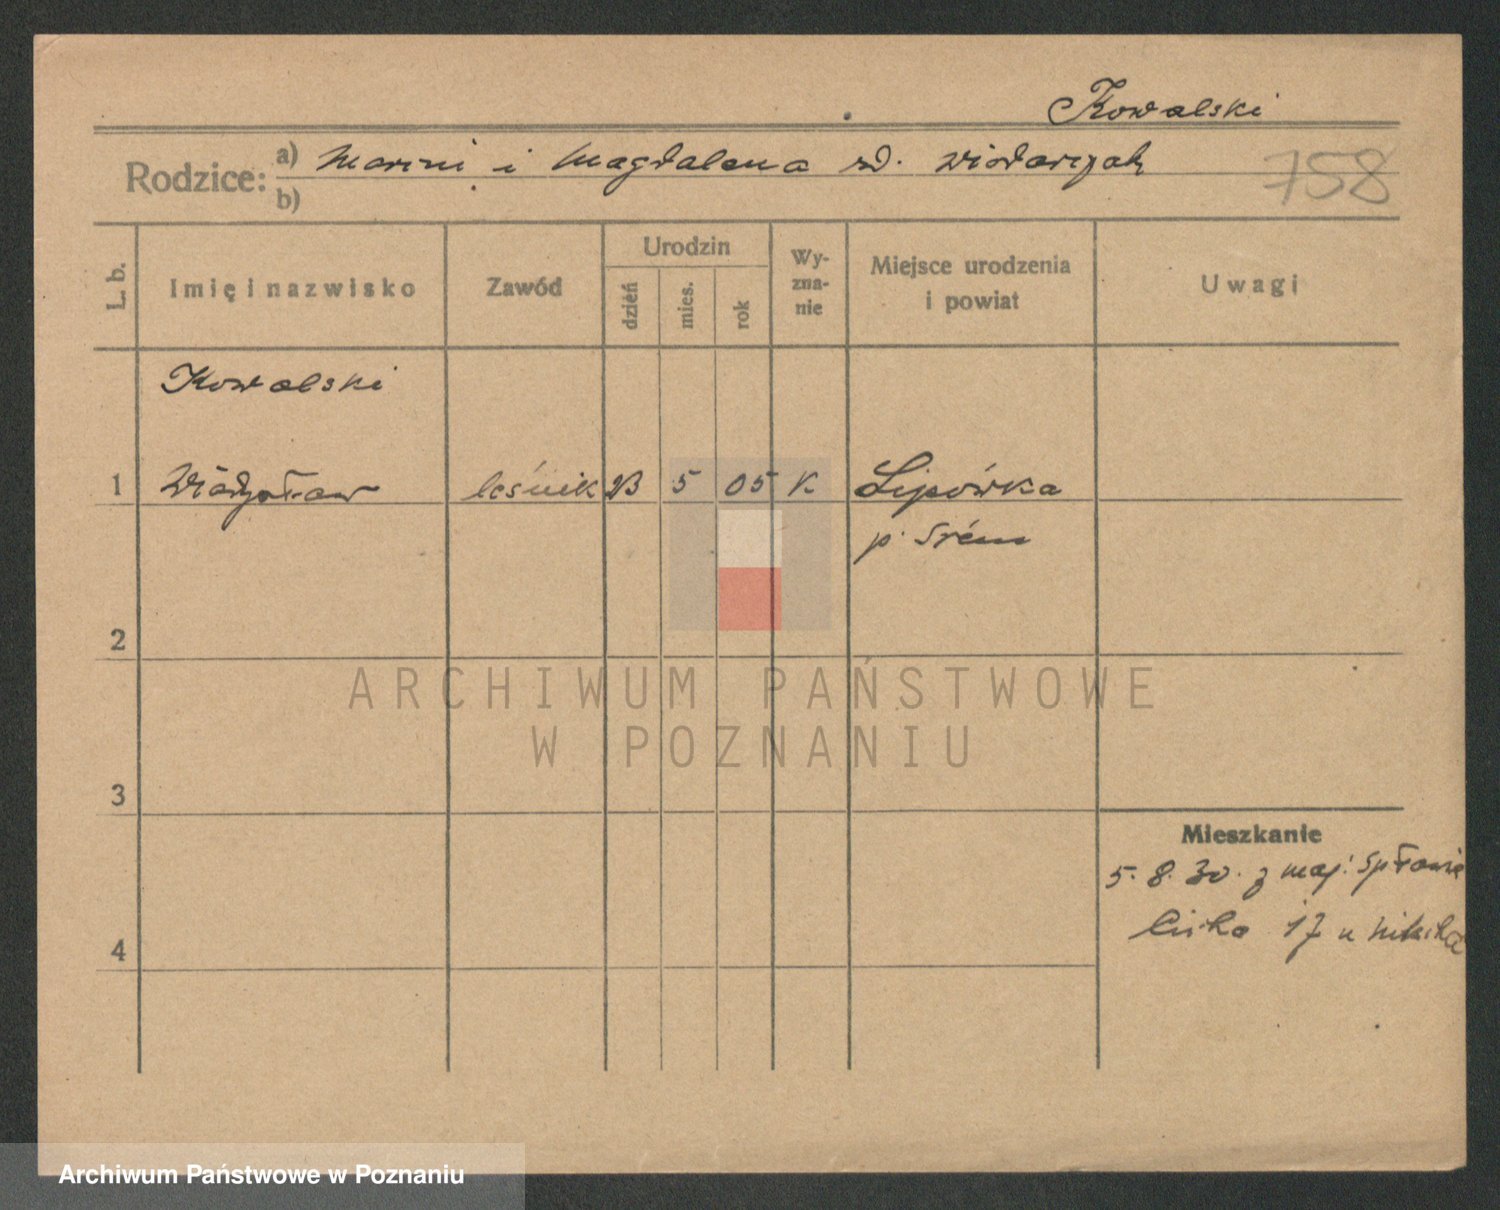 Kowalski
Rodzice: a) Marcin i Magdalena zd. Włodarczak
b)
758
L. b.
Imię i nazwisko
Zawód
Urodzin
dzień
mies.
rok
Wy-
zna-
nie
Miejsce urodzenia
i powiat
Uwagi
Kowalski
1 Władysław leśnik 23 5 05 K Lipówka
p. Śrem
2
ARCHIWUM PAŃSTWOWE
W POZNANIU
3
Mieszkanie
5. 8. 30. z maj. Spławie
17 u
4
Archiwum Państwowe w Poznaniu